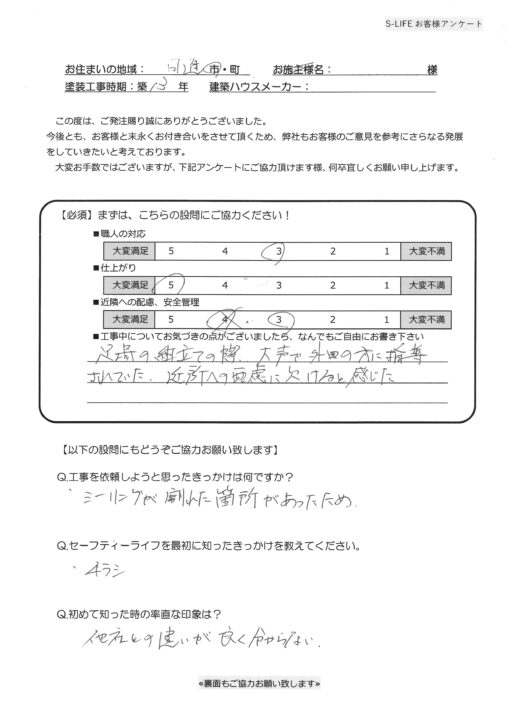 S-LIFE お客様アンケート
お住まいの地域： 日進 市・町 お施主様名： 様
塗装工事時期：築 13 年 建築ハウスメーカー：
この度は、ご発注賜り誠にありがとうございました。
今後とも、お客様と末永くお付き合いをさせて頂くため、弊社もお客様のご意見を参考にさらなる発展
をしていきたいと考えております。
大変お手数ではございますが、下記アンケートにご協力頂けます様、何卒宜しくお願い申し上げます。
【必須】まずは、こちらの設問にご協力ください！
■職人の対応
大変満足 5 4 3 2 1 大変不満
■仕上がり
大変満足 5 4 3 2 1 大変不満
■近隣への配慮、安全管理
大変満足 5 4 3 2 1 大変不満
■工事中についてお気づきの点がございましたら、なんでもご自由にお書き下さい
足場の組立ての際、大声で外国の方に指導
されていた、近所への配慮に欠けると感じた
【以下の設問にもどうぞご協力お願い致します】
Q.工事を依頼しようと思ったきっかけは何ですか？
・シーリングが割れた箇所があったため.
Q.セーフティーライフを最初に知ったきっかけを教えてください。
・チラシ
Q.初めて知った時の率直な印象は？
他社との違いが良く分からない.
≪裏面もご協力お願い致します≫